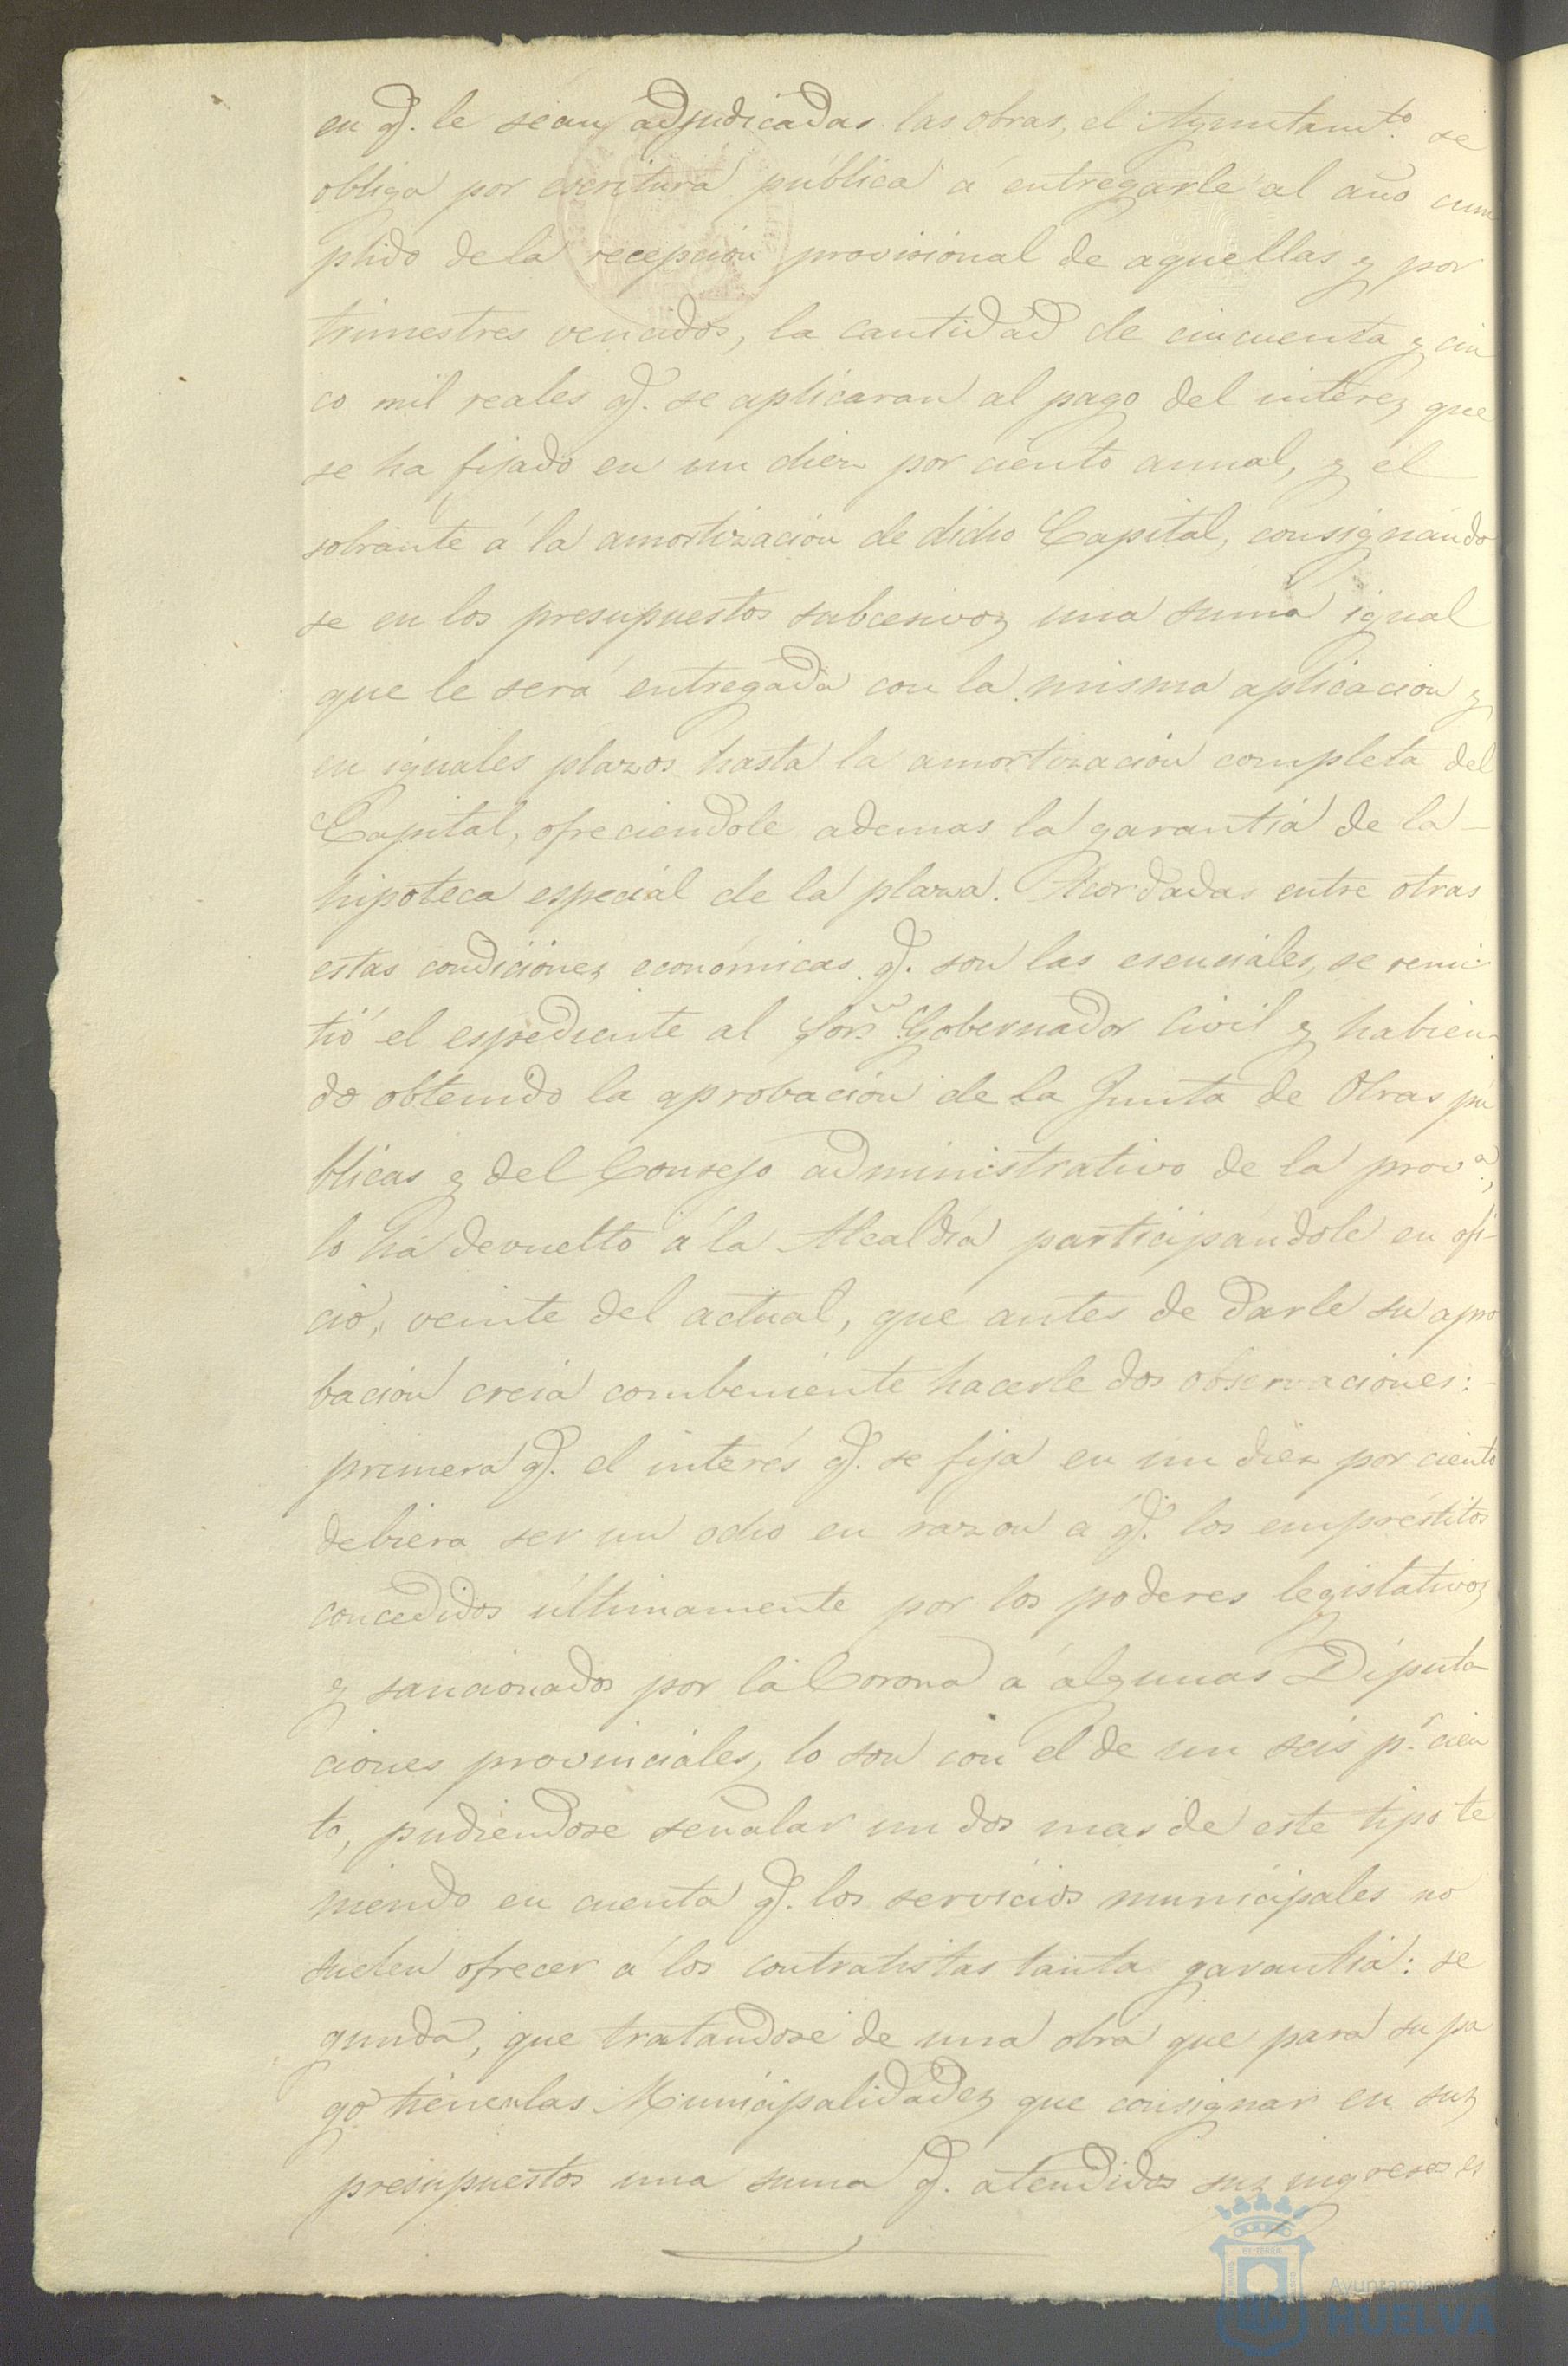 en q.e le sean adjudicadas las obras, el Ayuntamt.o se
obliga por escritura pública á entregarle al año cum
plido de la recepción provisional de aquellas y por
trimestres vencidos, la cantidad de cincuenta y cin
co mil reales q.e se aplicaran al pago del interez que
se ha fijado en un diez por ciento annal, y el
sobrante á la amortizacion de dicho Capital, consignándo
se en los presupuestos subcesivoz una suma igual
que le será entregada con la misma aplicacion y
en iguales plazos hasta la amortizacion completa del
Capital, ofreciendole ademas la garantía de la
hipoteca especial de la plaza. Acordadas entre otras
estas condicionez económicas q.e son las esenciales, se remi
tió el espediente al Sor. Gobernador Civil y habien
do obtenido la aprobacion de la Junta de Obras pú
blicas y del Consejo administrativo de la prov.a,
lo há devuelto á la Alcaldía participándole en ofi-
cio, veinte del actual, que antes de darle su apro
bacion creia combeniente hacerle dos observaciones:
primera q.e el interés q.e se fija en un diez por ciento
debiera ser un ocho en razon á q.e los empréstitos
concedidos últimamente por los poderes legislativoz
y sancionados por la Corona á algunas Diputa
ciones provinciales, lo son con el de un seis p.r cien
to, pudiendose señalar un dos mas de este tipo te
niendo en cuenta q.e los servicios municipales no
suelen ofrecer á los contratistas tanta garantía: se
gunda, que tratandose de una obra que para su pa
go tienen las Municipalidadez que consignar en suz
presupuestos una suma q.e atendidos suz ingresos es
Ayuntamiento
HUELVA